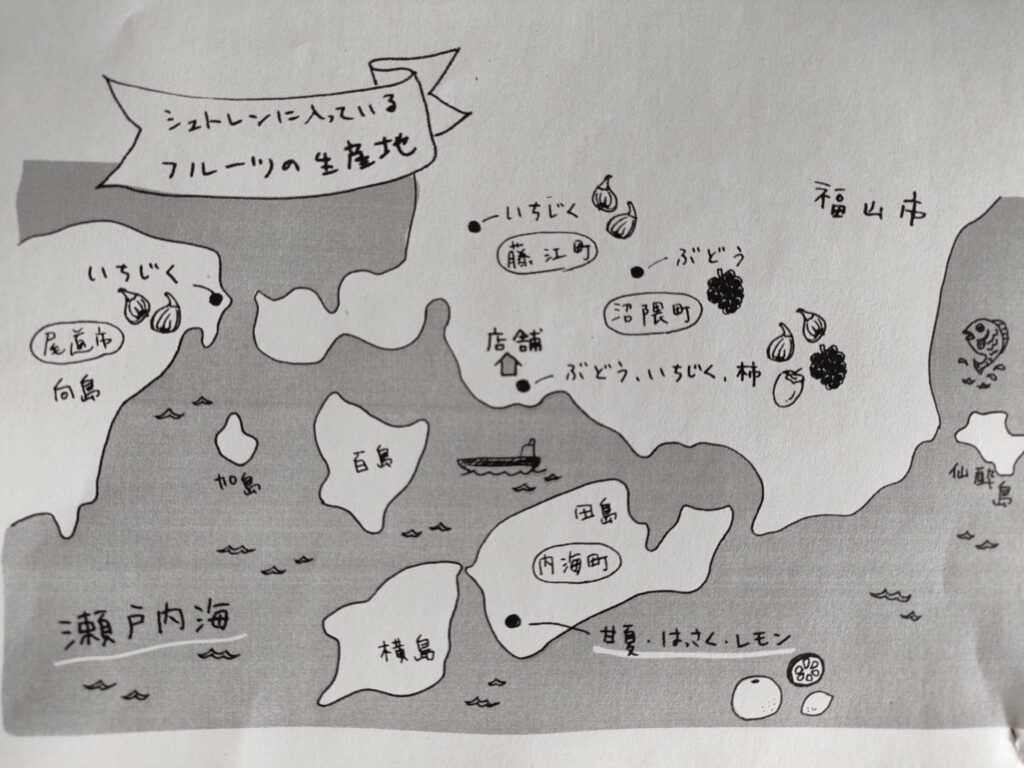 シュトレンに入っている
フルーツの生産地
福山市
いちじく
藤江町
ぶどう
沼隈町
いちじく
尾道市
向島
店舗
ぶどう、いちじく、柿
加島
百島
仙酔島
田島
内海町
瀬戸内海
横島
甘夏・はっさく・レモン